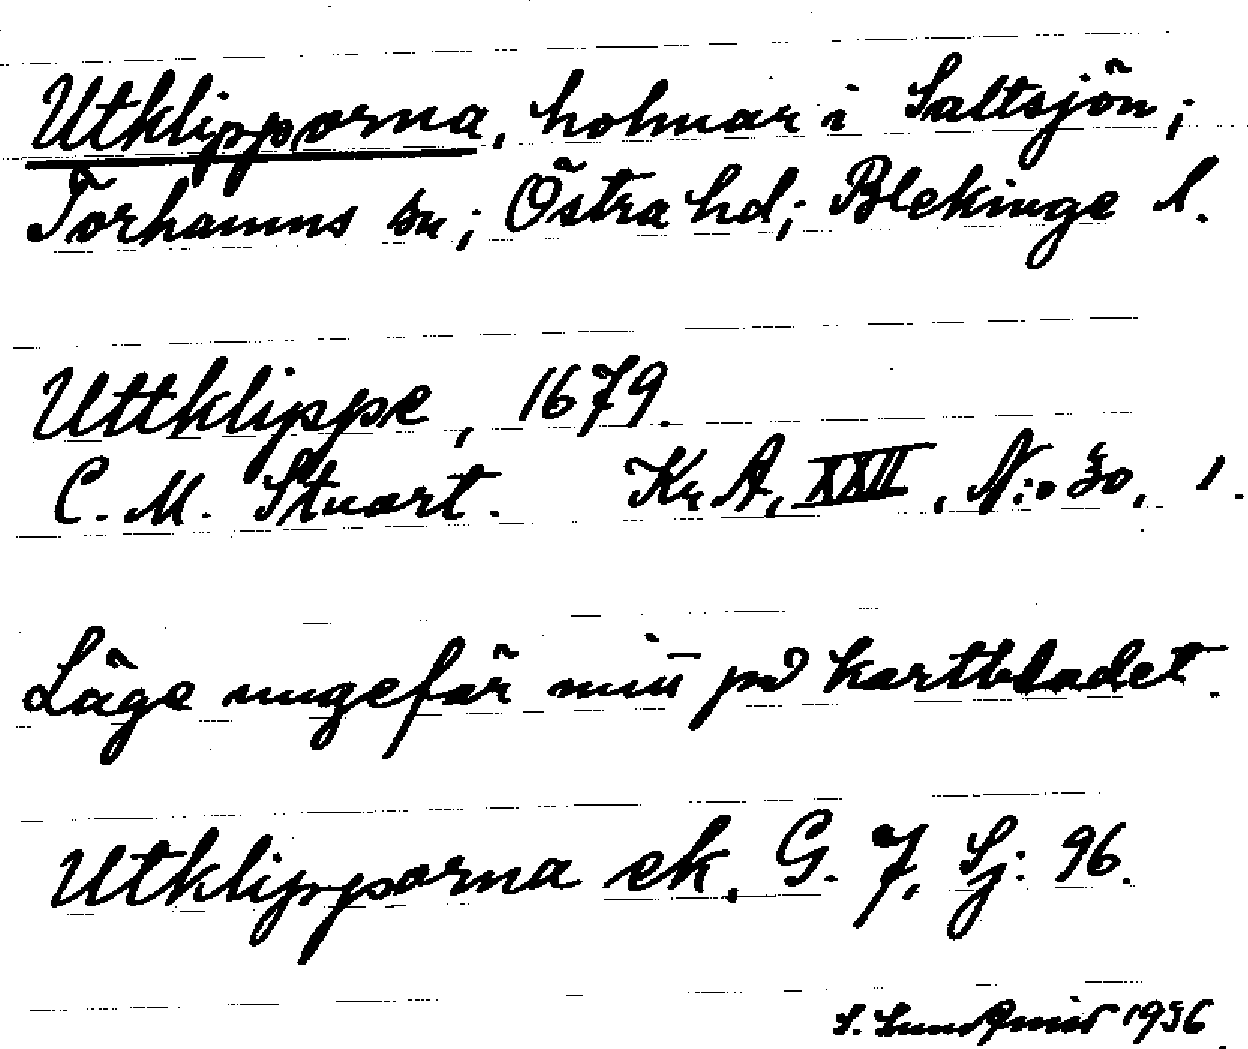 Utklipporna, holmar i Saltsjön;
Torhamns sn; Östra hd; Blekinge l.
Uttklippe, 1679.
C. M. Stuart. Kr A, XXII, N:o 30, 1.
Läge ungefär mitt på kartbladet.
Utklipporna ek. G. 7, Sj: 96.
S. 1936